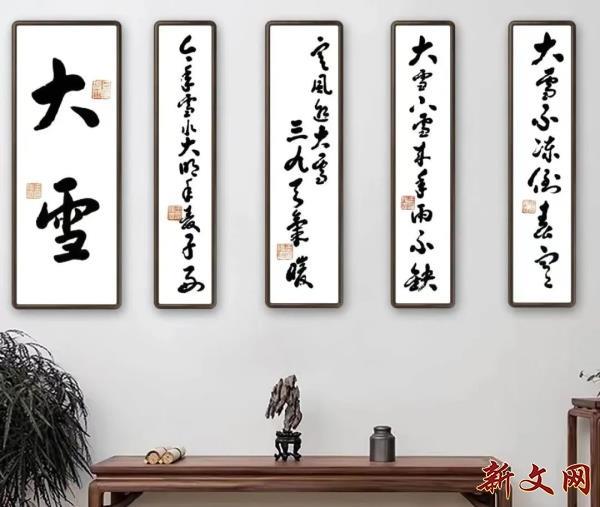 大雪
今年雪水大明年麦子
寒风迎大雪
三九天气暖
大雪下雪来年雨不缺
大雪不冻倒春寒
新文网